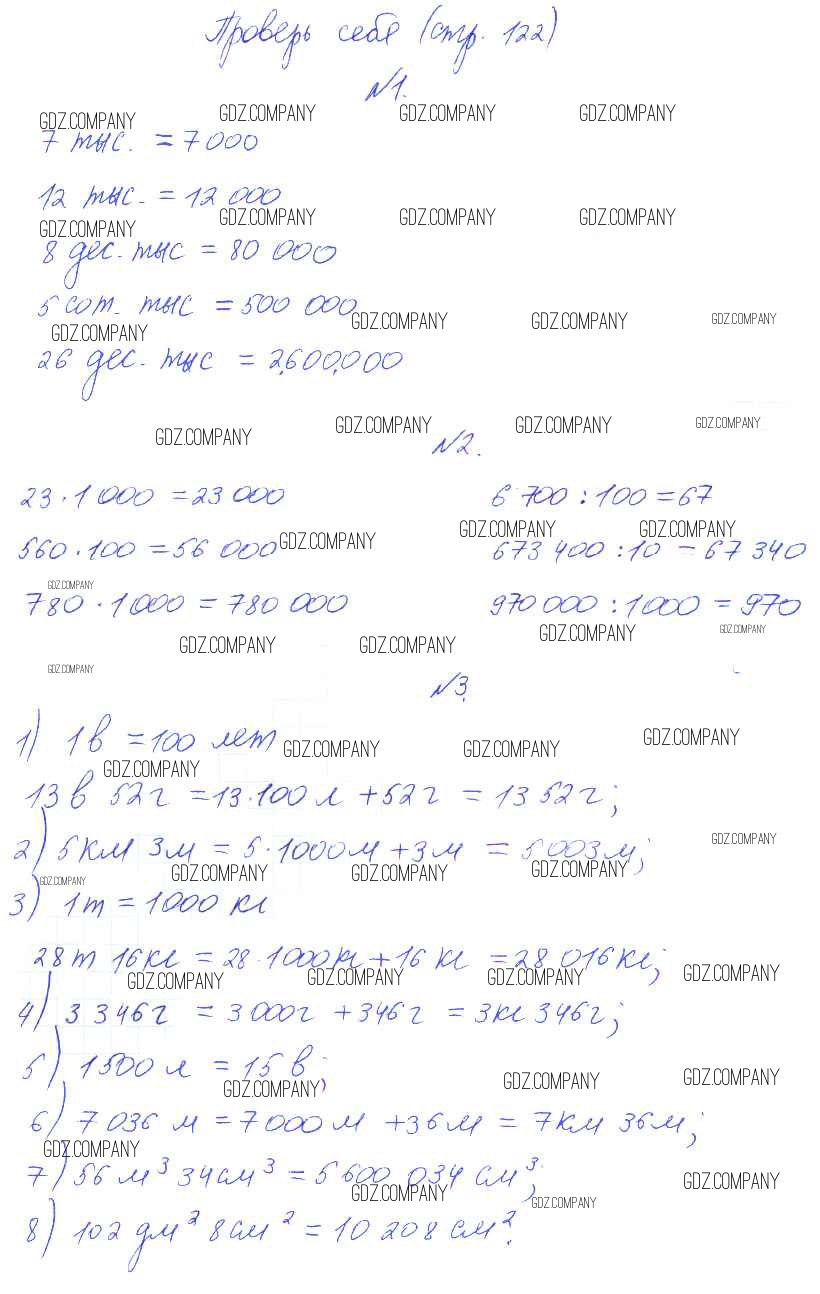 Проверь себя (стр. 122)
№1.
GDZ.COMPANY GDZ.COMPANY GDZ.COMPANY GDZ.COMPANY
7 тыс. = 7 000
12 тыс. = 12 000
GDZ.COMPANY GDZ.COMPANY GDZ.COMPANY GDZ.COMPANY
8 дес. тыс = 80 000
5 сот. тыс = 500 000
GDZ.COMPANY GDZ.COMPANY GDZ.COMPANY GDZ.COMPANY
26 дес. тыс = 2,600,000
GDZ.COMPANY GDZ.COMPANY GDZ.COMPANY GDZ.COMPANY
№2.
23 · 1 000 = 23 000 6 700 : 100 = 67
GDZ.COMPANY GDZ.COMPANY GDZ.COMPANY
560 · 100 = 56 000 673 400 : 10 = 67 340
GDZ.COMPANY
780 · 1 000 = 780 000 970 000 : 1000 = 970
GDZ.COMPANY GDZ.COMPANY GDZ.COMPANY GDZ.COMPANY
GDZ.COMPANY
№3.
1) 1 в = 100 лет
GDZ.COMPANY GDZ.COMPANY GDZ.COMPANY GDZ.COMPANY
13 в 52 г = 13·100 л + 52 г = 13 52 г;
2) 5 км 3 м = 5·1000 м + 3 м = 5 003 м;
GDZ.COMPANY GDZ.COMPANY GDZ.COMPANY GDZ.COMPANY GDZ.COMPANY
3) 1 т = 1000 кг
28 т 16 кг = 28·1000 кг + 16 кг = 28 016 кг;
GDZ.COMPANY GDZ.COMPANY GDZ.COMPANY GDZ.COMPANY
4) 3 346 г = 3 000 г + 346 г = 3 кг 346 г;
5) 1500 л = 15 в;
GDZ.COMPANY GDZ.COMPANY GDZ.COMPANY
6) 7 036 м = 7 000 м + 36 м = 7 км 36 м;
GDZ.COMPANY
7) 56 м³ 34 см³ = 5 600 034 см³;
GDZ.COMPANY GDZ.COMPANY GDZ.COMPANY
8) 102 дм² 8 см² = 10 208 см².